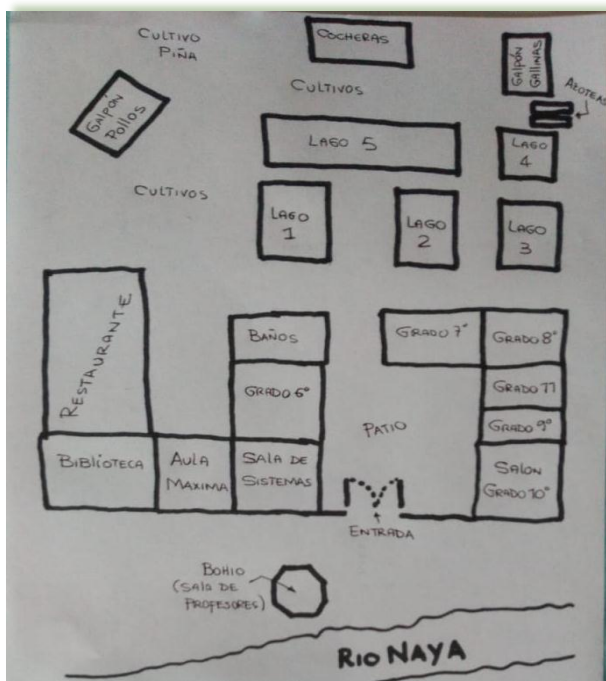 CULTIVO
PIÑA
COCHERAS
GALPÓN
GALLINAS
AZOTEAS
CULTIVOS
GALPÓN
POLLOS
LAGO 5
LAGO
4
CULTIVOS
LAGO
1
LAGO
2
LAGO
3
RESTAURANTE
BAÑOS
GRADO 7°
GRADO 8°
GRADO 6°
GRADO 11
GRADO 9°
PATIO
BIBLIOTECA
AULA
MAXIMA
SALA DE
SISTEMAS
SALON
GRADO 10°
ENTRADA
BOHIO
(SALA DE
PROFESORES)
RIO NAYA